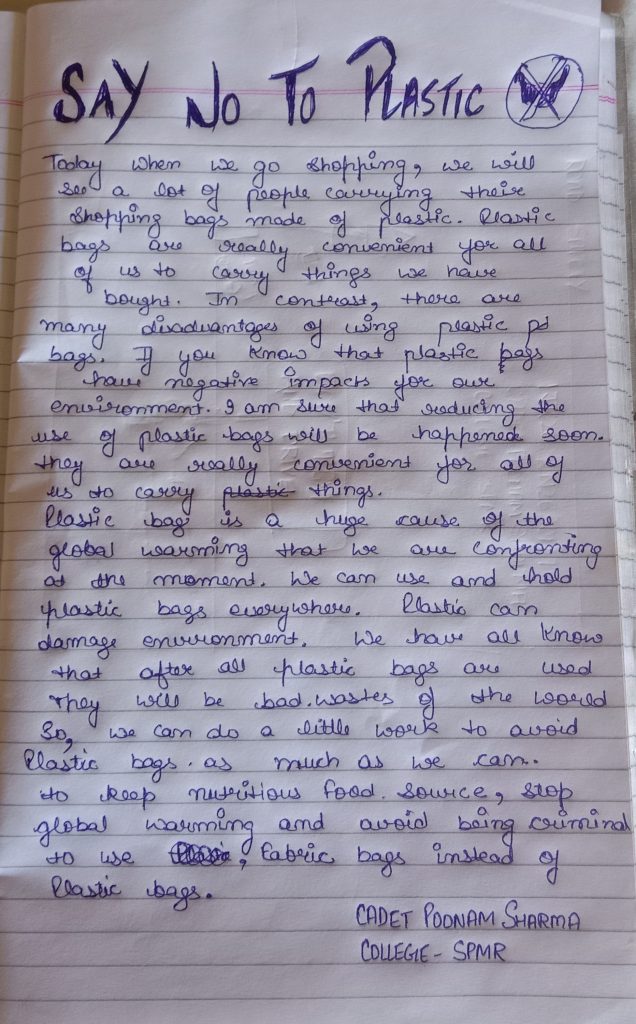 SAY NO TO PLASTIC
Today when we go shopping, we will
see a lot of people carrying their
shopping bags made of plastic. Plastic
bags are really convenient for all
of us to carry things we have
bought. In contrast, there are
many disadvantages of using plastic pd
bags. If you know that plastic bags
have negative impacts for our
environment. I am sure that reducing the
use of plastic bags will be happened soon.
they are really convenient for all of
us to carry plastic things.
Plastic bag is a huge cause of the
global warming that we are confronting
at the moment. We can use and hold
plastic bags everywhere. Plastic can
damage environment. We have all know
that after all plastic bags are used
They will be bad.wastes of the world
So, we can do a little work to avoid
Plastic bags. as much as we can.
to keep nutritious food. source, stop
global warming and avoid being criminal
to use , fabric bags instead of
Plastic bags.
CADET POONAM SHARMA
COLLEGE- SPMR